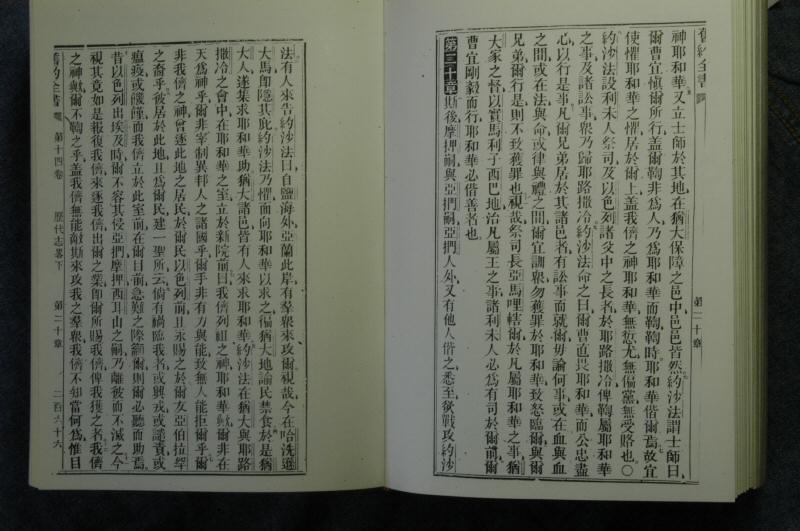 舊約全書
第二十章
神耶和華又立士師於其地在猶大保障之邑中邑邑皆然約沙法謂士師曰
爾曹宜慎爾所行蓋爾鞫非爲人乃爲耶和華而鞫鞫時耶和華偕爾焉故宜
使懼耶和華之懼居於爾上蓋我儕之神耶和華無愆尤無偏黨無受賂也〇
約沙法設利未人祭司及以色列諸父中之長者於耶路撒冷俾鞫屬耶和華
之事及諸訟事衆乃歸耶路撒冷約沙法命之曰爾曹直畏耶和華而公忠盡
心以行是事凡爾兄弟居於其諸邑者有訟事而就爾毋論何事或在血與血
之間或在法與命或律與禮之間爾宜訓衆勿獲罪於耶和華致怒臨爾與爾
兄弟爾行是則不致獲罪也視哉祭司長亞馬哩轄於凡屬耶和華之事猶
大家之督以實馬利子西巴地治凡屬王之事諸利未人必爲有司於爾前爾
曹宜剛毅而行耶和華必偕善者也
第二十章斯後摩押嗣與亞捫嗣亞捫人外又有他人偕之悉至欲戰攻約沙
法有人來告約沙法曰自鹽海外亞蘭此岸有羣衆來攻爾視哉今在哈洗遜
大馬即隱其庇約沙法乃懼面向耶和華以求之徧猶大地諭民禁食於是猶
大人遂集求耶和華助猶大諸邑皆有人來求耶和華約沙法在猶大與耶路
撒冷之會中在耶和華之室立於新院前曰我儕列祖之神耶和華歟爾非在
天爲神乎爾非宰制異邦人之諸國乎爾手非有力與能致無人能拒爾乎爾
非我儕之神曾逐此地之居民於爾民以色列前且永賜之於爾友亞伯拉罕
之裔乎彼居於此地且爲爾民建一聖所云倘有禍臨我者或興戎或譴責或
瘟疫或饑饉而我儕立於此室前在爾目前急難之際籲爾則爾必聽而助焉
昔以色列出埃及時爾不容其侵亞捫摩押西耳山之嗣乃離彼而不滅之今
視其竟如是報復我儕來逐我儕出爾之業即爾所賜我儕俾我獲之者我儕
之神歟爾不鞫之乎蓋我儕無能敵斯來攻我之羣衆我儕不知當何爲惟目
舊約全書
第十四卷
歷代志畧下
第二十章
二百六十六